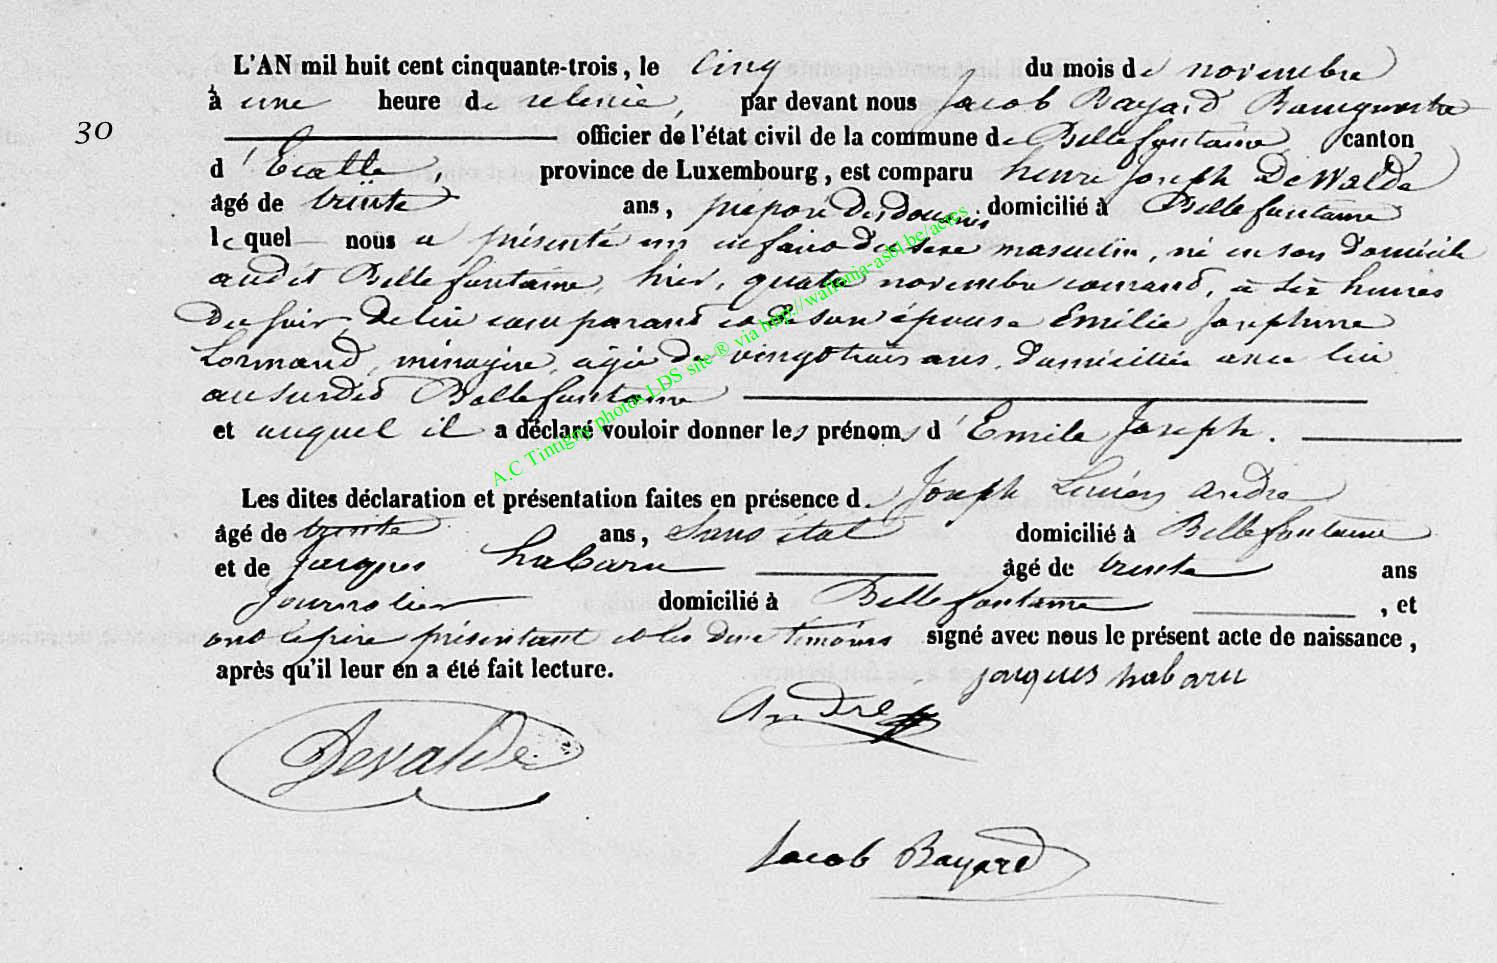 L'AN mil huit cent cinquante-trois, le Cinq du mois de novembre
à une heure de relevée, par devant nous Jacob Bayard Bourgmestre
30
officier de l'état civil de la commune de Bellefontaine, canton
d'Etalle, province de Luxembourg, est comparu henri Joseph DeWalde
âgé de trente ans, préposé des douanes domicilié à Bellefontaine
lequel nous a présenté un enfant du sexe masculin, né en son domicile
audit Bellefontaine, hier, quatre novembre courant, à six heures
du soir, de lui comparant et de son épouse Emilie Josephine
Lormand, ménagère, agée de vingt trois ans, domiciliée avec lui
au susdit Bellefontaine
et auquel il a déclaré vouloir donner les prénoms d'Emile Joseph.
Les dites déclaration et présentation faites en présence de Joseph Lucien André
âgé de trente ans, sans état domicilié à Bellefontaine
et de Jacques habaru âgé de trente ans
Journalier domicilié à Bellefontaine, et
ont le père présentant et les deux témoins signé avec nous le présent acte de naissance,
après qu'il leur en a été fait lecture.
jacques habaru
André
Devalde
Jacob Bayard
A.C Tintigny photos LDS site ® via http://wallonia-asbl.be/actes